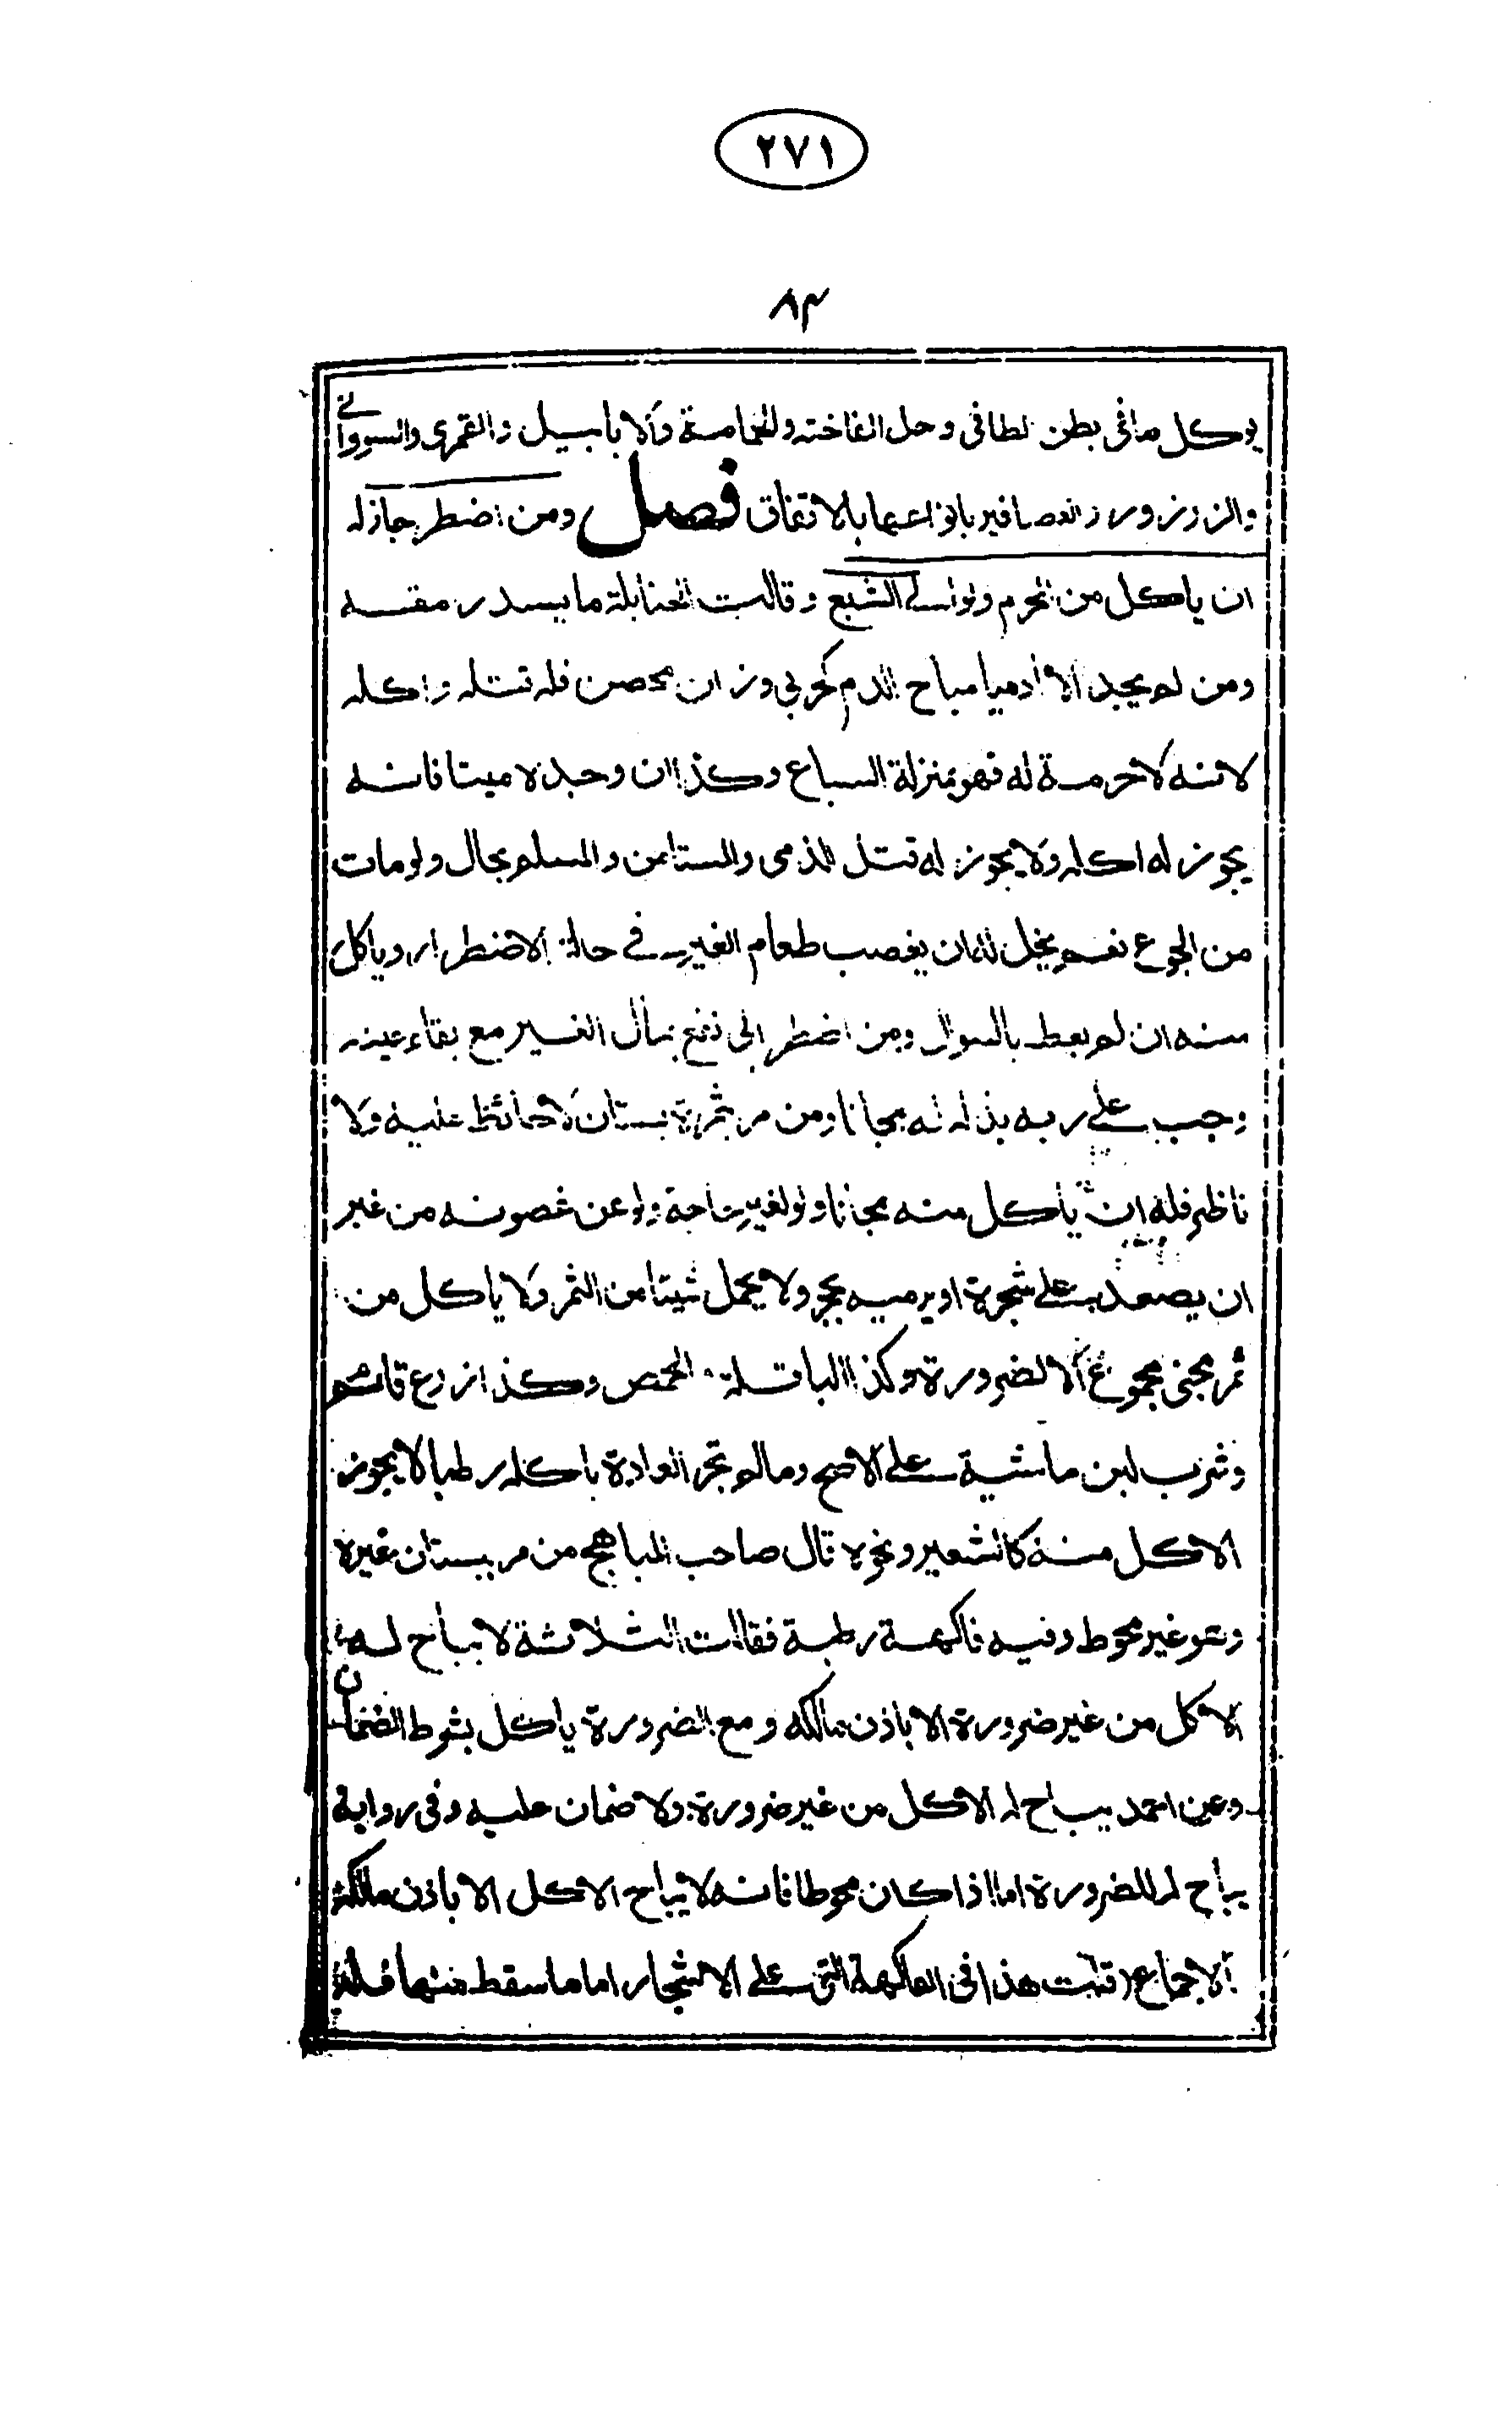 ٢٧١
٨٣
يوكل ما في بطن لطافى وحل الفاخته والحمامة والابابيل والقمرى والسوداني
والزرزور والعصافير بانواعها بالاتفاق فصل ومن اضطر جاز له
ان ياكل من المحرم ولو الى الشبع وقالت الحنابلة ما يسد رمقه
ومن لم يجد الا ادميا مباح الدم كحربي وزان محصن فله قتله واكله
لانه لا حرمة له فهو بمنزلة السباع وكذا ان وجده ميتا فانه
يجوز له اكله ولا يجوز له قتل الذمى والمستامن والمسلم بحال ولو مات
من الجوع نعم يحل له ان يغصب طعام الغير في حالة الاضطرار وياكل
منه ان لم يعط بالسوال ومن اضطر الى نفع بمال الغير مع بقاء عينه
وجب على ربه بذله له مجانا ومن مر بثمرة بستان لا حائط عليه ولا
ناظر فله ان ياكل منه مجانا ولو لغير حاجة ولو عن غصونه من غير
ان يصعد على شجرة او يرميه بحجر ولا يحمل شيئا من الثمر ولا ياكل من
ثمر مجنى مجموع الا لضرورة وكذا الباقلة والحمص وكذا زرع قائم
وشرب لبن ماشية على الاصح وما لم تجر العادة باكله رطبا لا يجوز
الاكل منه كالشعير ونحوه قال صاحب المباهج من مر ببستان غيره
وهو غير محوط وفيه فاكهة رطبة فقالت الثلاثة لا يباح له
الاكل من غير ضرورة الا باذن مالكه ومع الضرورة ياكل بشرط الضمان
وعن احمد يباح له الاكل من غير ضرورة ولا ضمان عليه وفى رواية
يباح له للضرورة اما اذا كان محوطا فانه لا يباح الاكل الا باذن مالكه
الاجماع قلت هذا فى الفاكهة التى على الاشجار اما ما سقط منها فله